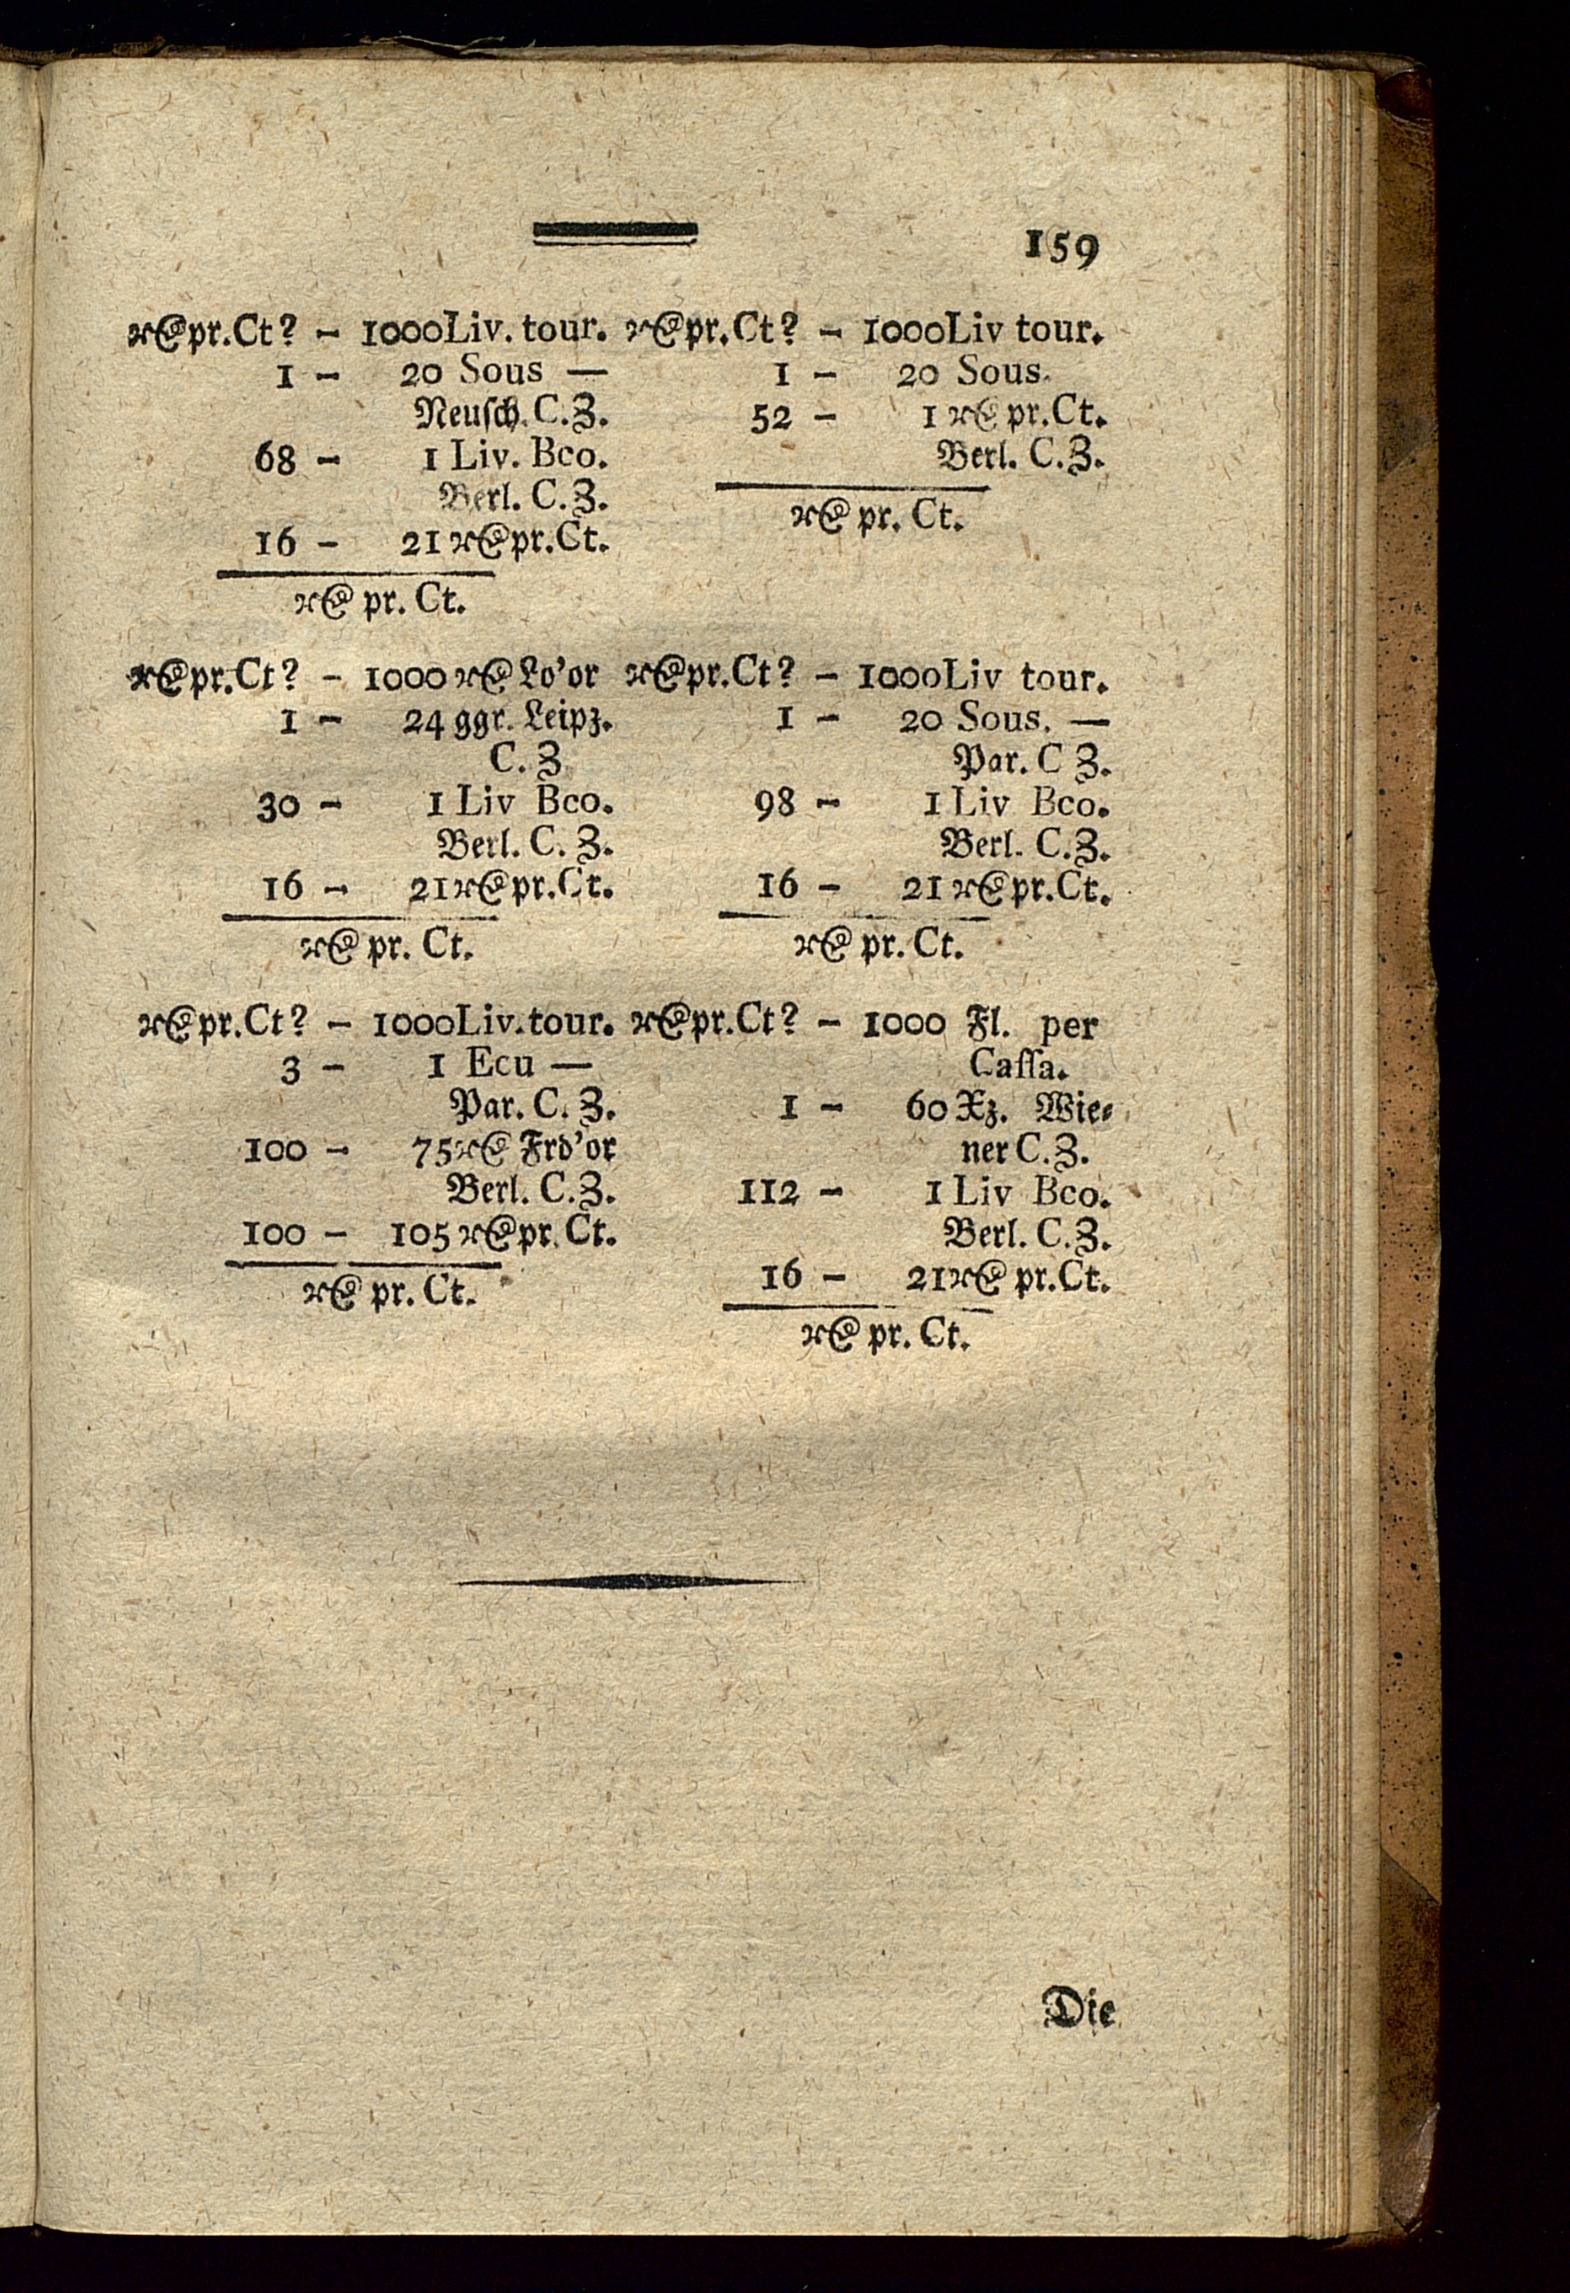 159
rℓ pr.Ct? – 1000 Liv. tour.
1 – 20 Sous —
Neuſch. C. Z.
68 – 1 Liv. Bco.
Berl. C. Z.
16 – 21 rℓ pr. Ct.
rℓ pr. Ct.
rℓ pr.Ct? – 1000 Liv tour.
1 – 20 Sous.
52 – 1 rℓ pr. Ct.
Berl. C. Z.
rℓ pr. Ct.
rℓ pr.Ct? – 1000 rℓ Lo'or
1 – 24 ggr. Leipz.
C. Z
30 – 1 Liv Bco.
Berl. C. Z.
16 – 21 rℓ pr. Ct.
rℓ pr. Ct.
rℓ pr.Ct? – 1000 Liv tour.
1 – 20 Sous. —
Par. C Z.
98 – 1 Liv Bco.
Berl. C. Z.
16 – 21 rℓ pr. Ct.
rℓ pr. Ct.
rℓ pr.Ct? – 1000 Liv. tour.
3 – 1 Ecu —
Par. C. Z.
100 – 75 rℓ Frd'or
Berl. C. Z.
100 – 105 rℓ pr. Ct.
rℓ pr. Ct.
rℓ pr.Ct? – 1000 Fl. per
Caſſa.
1 – 60 Xz. Wie⸗
ner C. Z.
112 – 1 Liv Bco.
Berl. C. Z.
16 – 21 rℓ pr. Ct.
rℓ pr. Ct.
Die